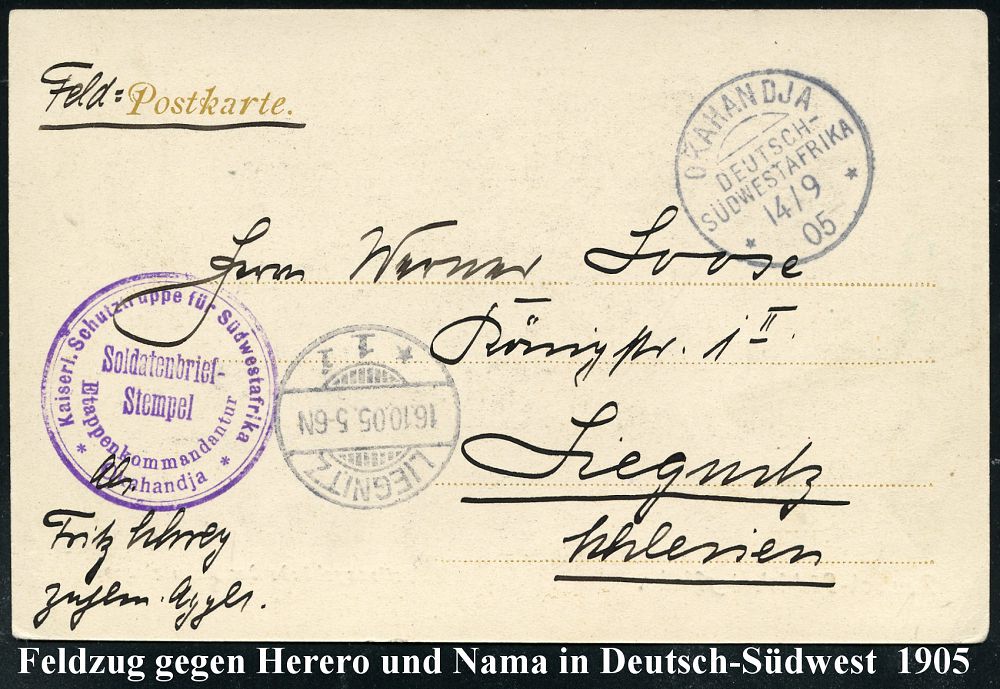 Feld=Postkarte.
OKAHANDJA
DEUTSCH-
SÜDWESTAFRIKA
14/9
05
Herrn Werner Loose
Königstr. 1 II
Liegnitz
Schlesien
Kaiserl. Schutztruppe für Südwestafrika
Soldatenbrief-
Stempel
Etappenkommandantur
Okahandja
* 1 1
16.10.05.5-6N
LIEGNITZ
Abs.
Fritz
Feldzug gegen Herero und Nama in Deutsch-Südwest 1905